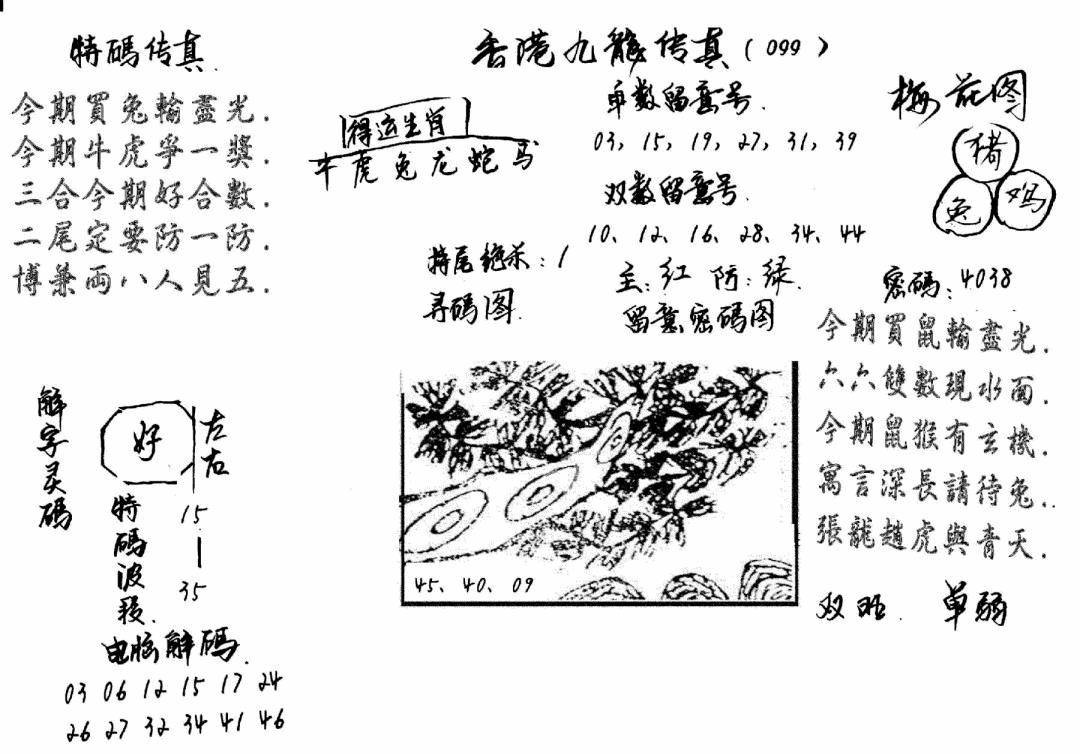 特碼传真.
今期買兔輸盡光.
今期牛虎爭一獎.
三合今期好合數.
二尾定要防一防.
博兼兩八人見五.
香港九龍传真(099)
得运生肖
牛虎兔龙蛇马
单数留意号.
03, 15, 19, 27, 31, 39
双数留意号.
10、12、16、28、34、44
特尾绝杀:1
主:红 防:绿.
寻碼图.
留意密碼图
梅花图
猪
兔
鸡
密碼:4038
今期買鼠輸盡光.
六六雙數現水面.
今期鼠猴有玄機.
寓言深長請待兔..
張龍趙虎與青天.
双旺. 单弱
45、40、09
解字灵碼
好
左右
特碼波段.
15
35
电脑解碼.
03 06 12 15 17 24
26 27 32 34 41 46